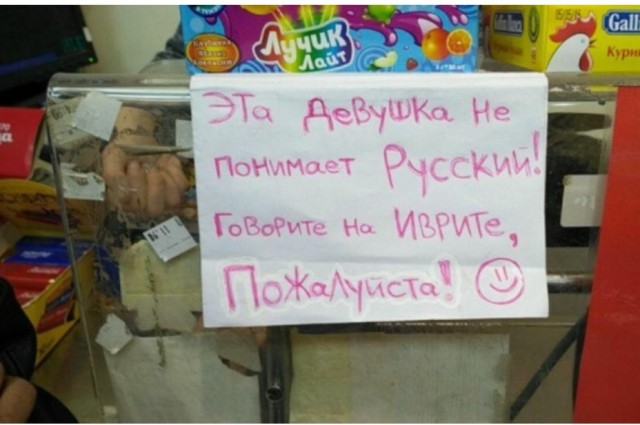 Лучик
Лайт
Gall
Кури
Эта девушка не
понимает Русский!
Говорите на Иврите,
Пожалуйста!